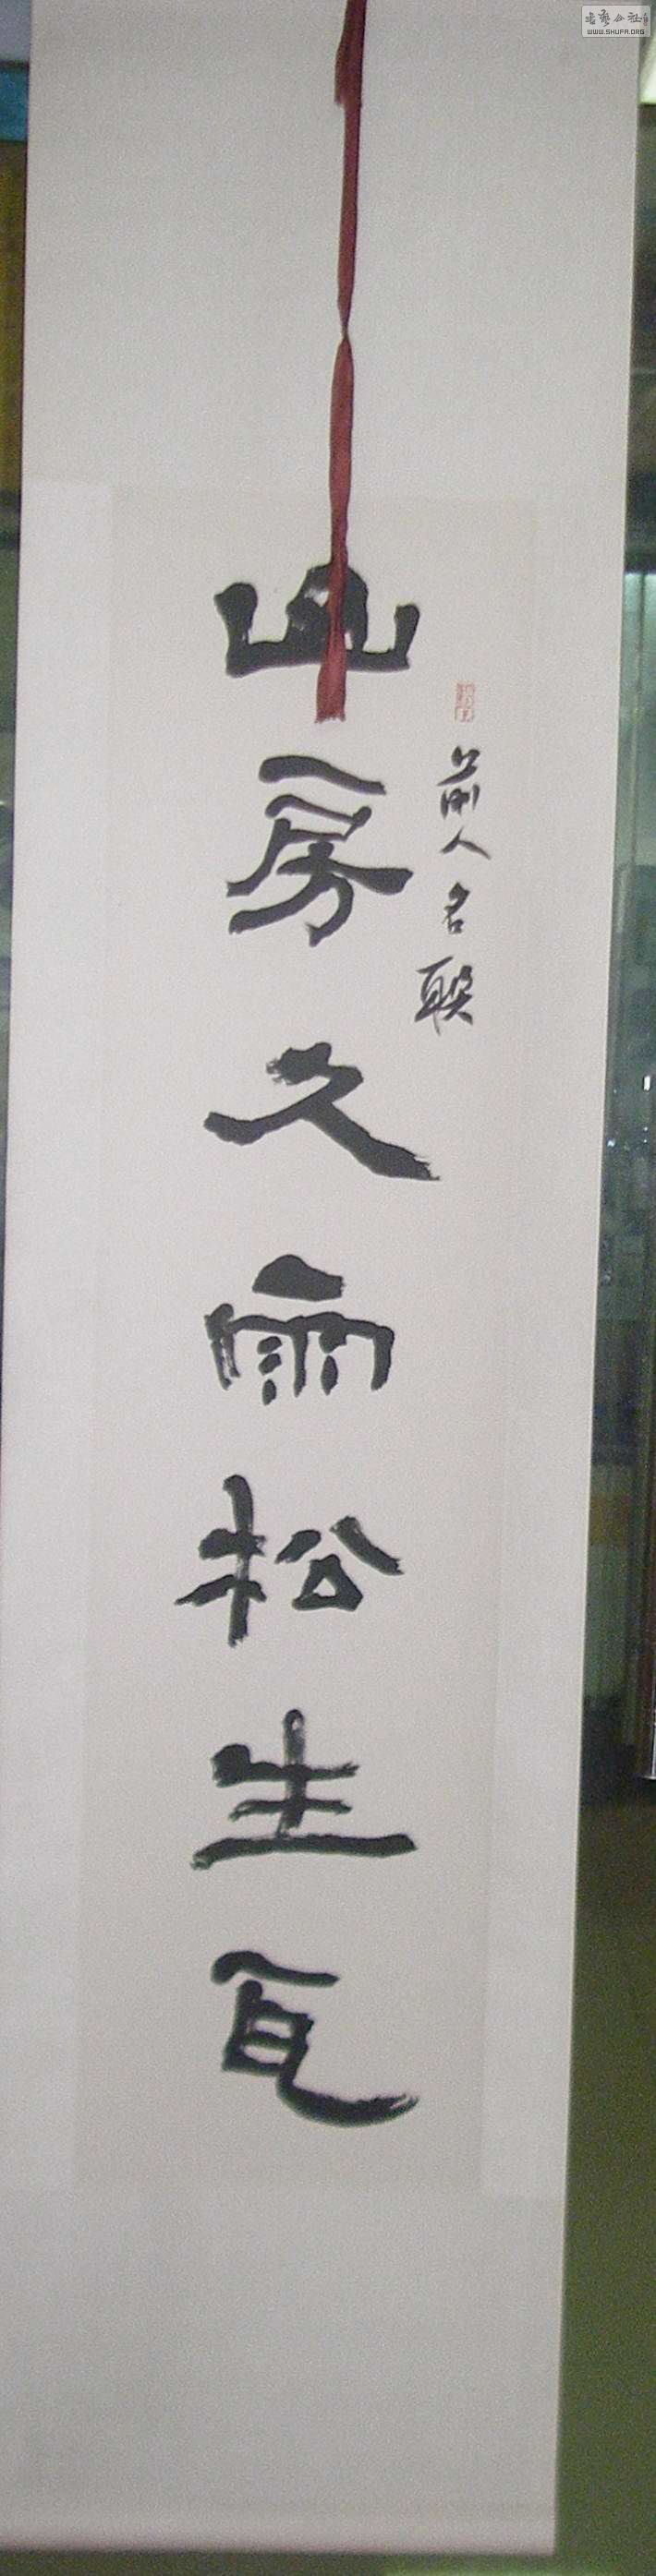 山房久雨松生瓦
前人名联
书艺公社
WWW.SHUFA.ORG